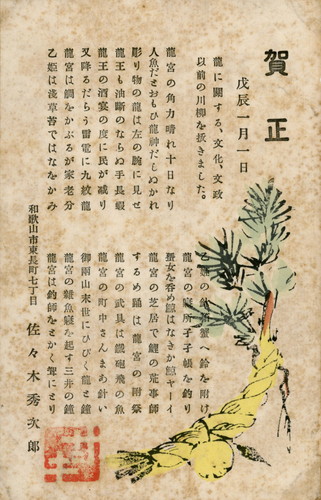 賀正
戊辰一月一日
龍に關する、文化、文政
以前の川柳を拔きました。
龍宮の角力晴れ十日なり
人魚だとおもひ龍神だしぬかれ
彫り物の龍は左の腕に見せ
龍王も油斷のならぬ手長蝦
龍王の酒宴の度に民が減り
又降るだらう雷電に九紋龍
龍宮は鯛をかぶるが家老分
乙姫は淺草苔ではなをかみ
蟹へ鈴を附け
龍宮の
龍宮の芝居で鯉の荒事師
するめ踊は龍宮の附祭
龍宮の武具は鐵砲飛の魚
龍宮の町中さんまあ針い
御兩山末世にひびく龍と鐘
龍宮の雜魚寢を起す三井の鐘
龍宮は釣師をとかく聟にとり
和歌山市東長町七丁目
佐々木秀次郎